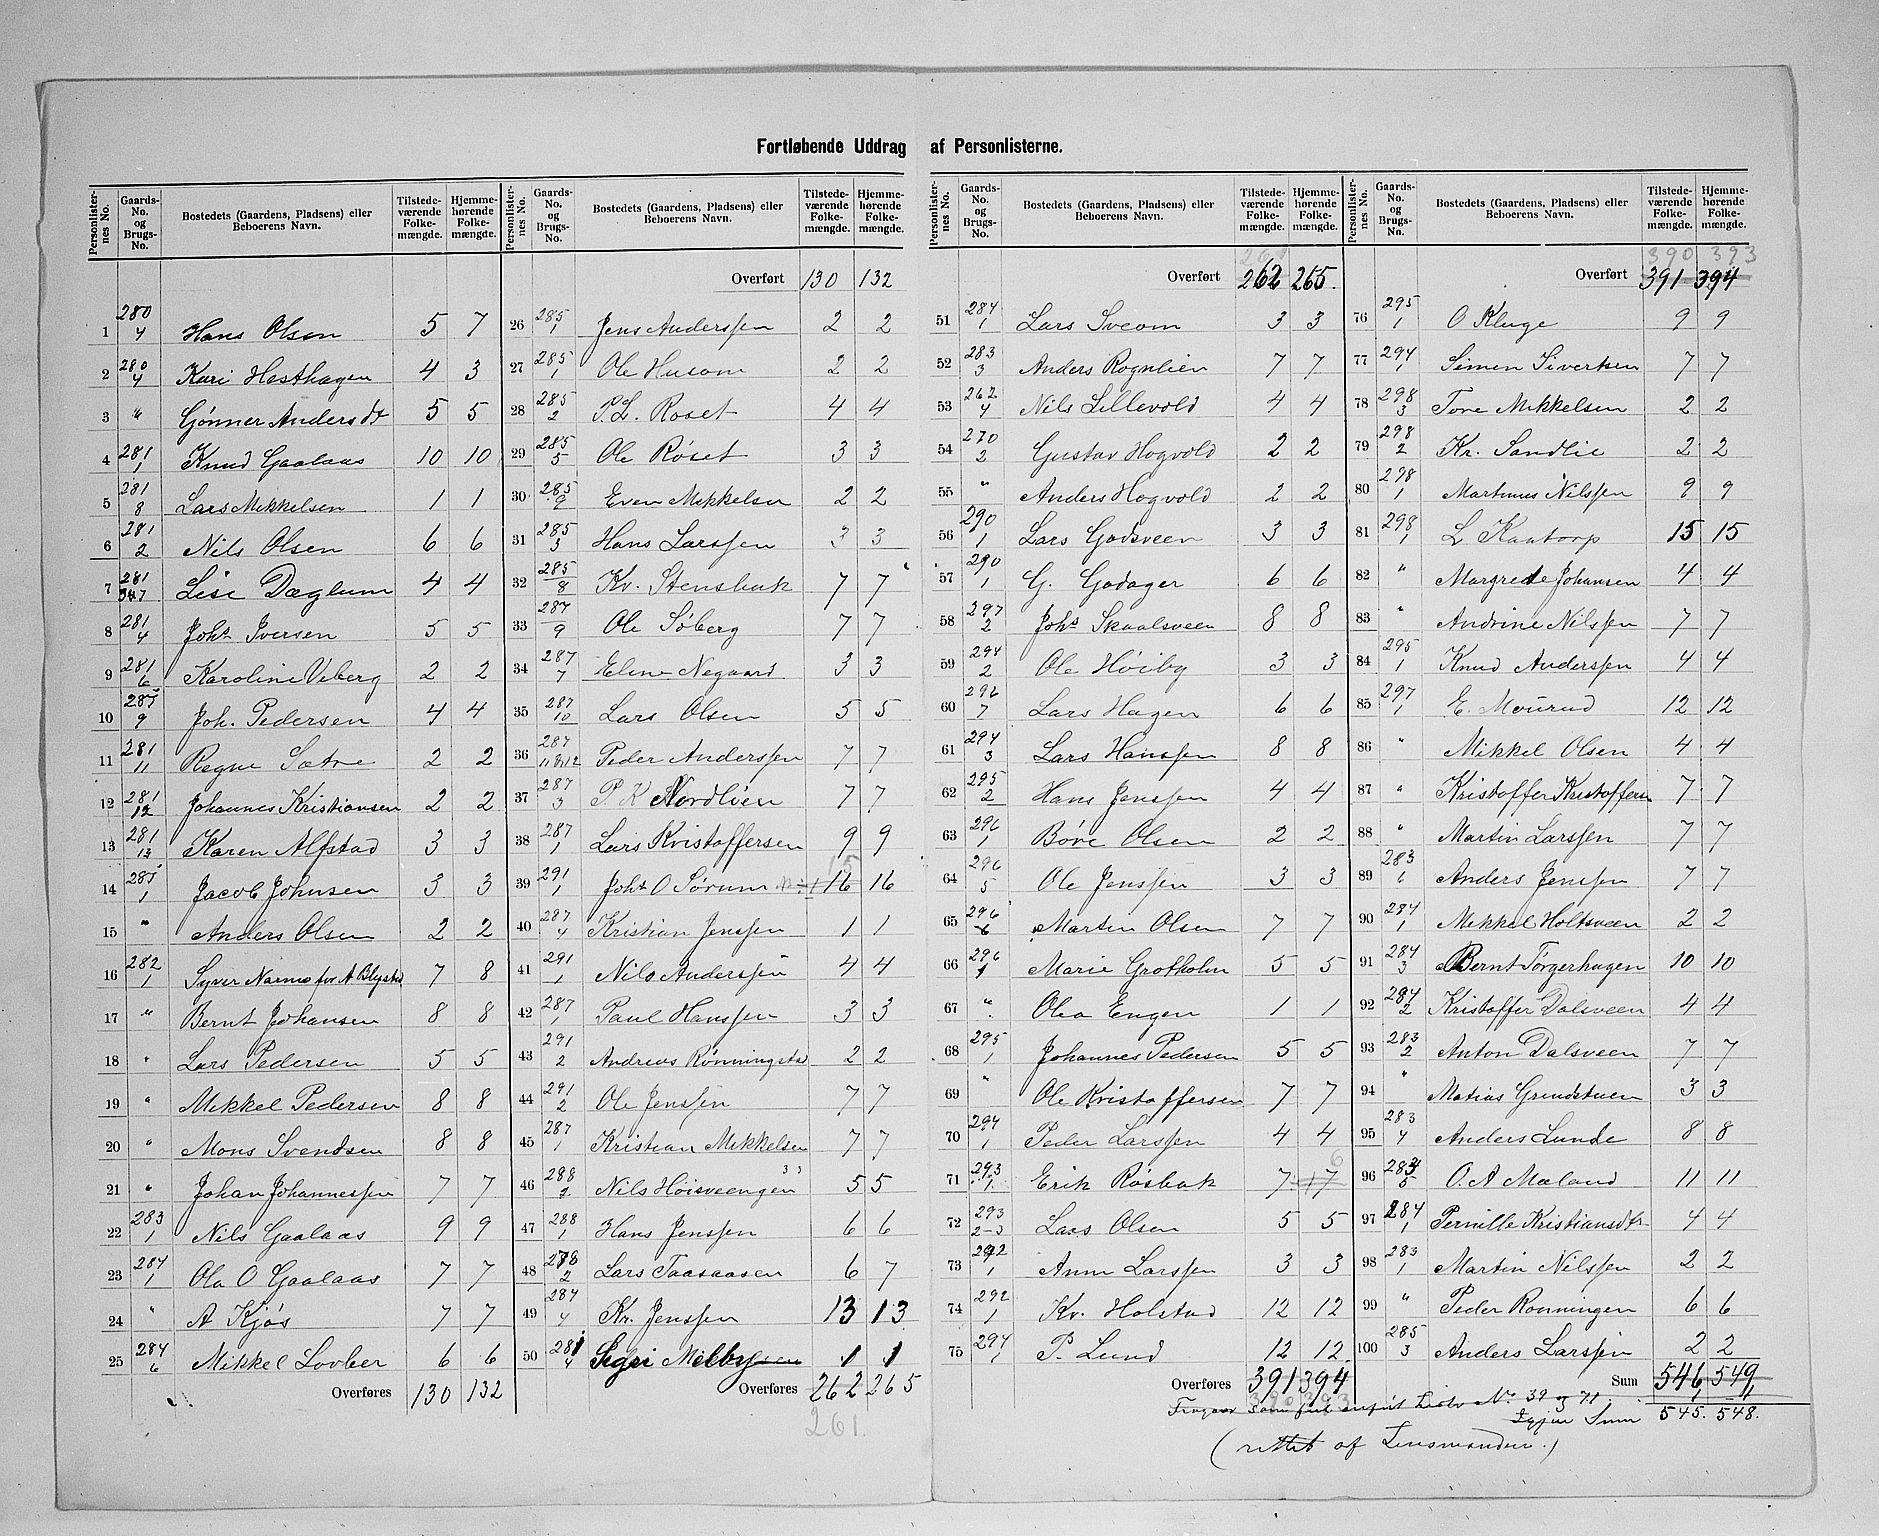 Fortløbende Uddrag af Personlisterne.
Personlister-nes No. Gaards-No. og Brugs-No. Bostedets (Gaardens, Pladsens) eller Beboerens Navn. Tilstede-værende Folke-mængde. Hjemme-hørende Folke-mængde.
1 280/4 Hans Olsen 5 7
2 280/4 Kari Hesthagen 4 3
3 " Gønner Andersdt 5 5
4 281/1 Knud Gaalaas 10 10
5 281/8 Lars Mikkelsen 1 1
6 281/2 Nils Olsen 6 6
7 281 Lise Dæglum 4 4
8 281/4 Johs Iversen 5 5
9 281/6 Karoline Viberg 2 2
10 281/9 Joh. Pedersen 4 4
11 281/11 Regne Sætre 2 2
12 281/12 Johannes Kristiansen 2 2
13 281/13 Karen Alfstad 3 3
14 281/1 Jacob Johnsen 3 3
15 " Anders Olsen 2 2
16 282/1 Syver Narmo for A Blystad 7 8
17 " Bernt Johansen 8 8
18 " Lars Pedersen 5 5
19 " Mikkel Pedersen 8 8
20 " Mons Svendsen 8 8
21 " Johan Johannessen 7 7
22 283/1 Nils Gaalaas 9 9
23 284/1 Ola O Gaalaas 7 7
24 " A Kjøs 7 7
25 284/6 Mikkel Lovber 6 6
Overføres 130 132
Personlister-nes No. Gaards-No. og Brugs-No. Bostedets (Gaardens, Pladsens) eller Beboerens Navn. Tilstede-værende Folke-mængde. Hjemme-hørende Folke-mængde.
Overført 130 132
26 285/1 Jens Anderssen 2 2
27 285/1 Ole Husom 2 2
28 285/2 P. L. Roset 4 4
29 285/5 Ole Røset 3 3
30 285/9 Even Mikkelsen 2 2
31 285/3 Hans Larssen 3 3
32 285/8 Kr. Stensbak 7 7
33 287/9 Ole Søberg 7 7
34 287/7 Eline Negaard 3 3
35 287/10 Lars Olsen 5 5
36 287/11 & 12 Peder Anderssen 7 7
37 287/3 P. K Nordlien 7 7
38 287/1 Lars Kristoffersen 9 9
39 291/1 Johs O Sørum 16 16
40 287/4 Kristian Jenssen 1 1
41 291/1 Nils Anderssen 4 4
42 287/1 Paul Hanssen 3 3
43 291/2 Andreas Rønningstad 2 2
44 291/2 Ole Jenssen 7 7
45 287/1 Kristian Mikkelsen 7 7
46 288/2 Nils Høisveengen 5 5
47 288/1 Hans Jenssen 6 6
48 Lars Taasaasen 6 7
49 287/4 Kr. Jenssen 13 13
50 281/4 Sigri Melby 1 1
Overføres 262 265
261.
Personlister-nes No. Gaards-No. og Brugs-No. Bostedets (Gaardens, Pladsens) eller Beboerens Navn. Tilstede-værende Folke-mængde. Hjemme-hørende Folke-mængde.
Overført 262 265.
51 284/1 Lars Sveom 3 3
52 283/3 Anders Rognlien 7 7
53 262/4 Nils Lillevold 4 4
54 270/2 Gustav Hogvold 2 2
55 " Anders Hogvold 2 2
56 290/1 Lars Godsveen 3 3
57 290/1 G. Godager 6 6
58 297/2 Johs Skaalsveen 8 8
59 294/2 Ole Høiby 3 3
60 296/7 Lars Hagen 6 6
61 294/3 Lars Hanssen 8 8
62 295/2 Hans Jenssen 4 4
63 296/1 Bøve Olsen 2 2
64 296/5 Ole Jenssen 3 3
65 296/6 Martin Olsen 7 7
66 296/1 Marie Grotholm 5 5
67 " Olea Engen 1 1
68 295/1 Johannes Pedersen 5 5
69 " Ole Kristoffersen 7 7
70 294/1 Peder Larssen 4 4
71 293/1 Erik Røsbak 7 7 6
72 293/2-3 Lars Olsen 5 5
73 292/1 Anne Larssen 3 3
74 292/1 Kr. Holstad 12 12
75 294/1 P. Lund 12 12.
Overføres 391 394
390 393
Personlister-nes No. Gaards-No. og Brugs-No. Bostedets (Gaardens, Pladsens) eller Beboerens Navn. Tilstede-værende Folke-mængde. Hjemme-hørende Folke-mængde.
390 393
Overført 391 394
76 295/1 O Kluge 9 9
77 294/1 Simen Sivertsen 7 7
78 298/3 Tore Mikkelsen 2 2
79 298/2 Kr. Sandlie 2 2
80 298/1 Martinus Nilssen 9 9
81 298/1 L Kaatorp 15 15
82 " Margrete Johansen 4 4
83 " Andrine Nilssen 7 7
84 295/1 Knud Anderssen 4 4
85 297/1 E. Mourud 12 12
86 " Mikkel Olsen 4 4
87 " Kristoffer Kristoffersen 7 7
88 " Martin Larssen 7 7
89 283/6 Anders Jenssen 7 7
90 284/1 Mikkel Holtsveen 2 2
91 284/3 Bernt Torgerhagen 10 10
92 284/2 Kristoffer Dalsveen 4 4
93 283/2 Anton Dalsveen 7 7
94 " Matias Grundstuen 3 3
95 283/4 Anders Lunde 8 8
96 O. A Mæland 11 11
97 284/1 Pernille Kristiansdtr 4 4
98 283/1 Martin Nilssen 2 2
99 " Peder Rønningen 6 6
100 285/3 Anders Larssen 2 2
Sum 546 549
Fragaar som feil anført Liste No 39 og 71 1 1
Igjen Sum 545. 548.
(rettet af Lensmanden.)